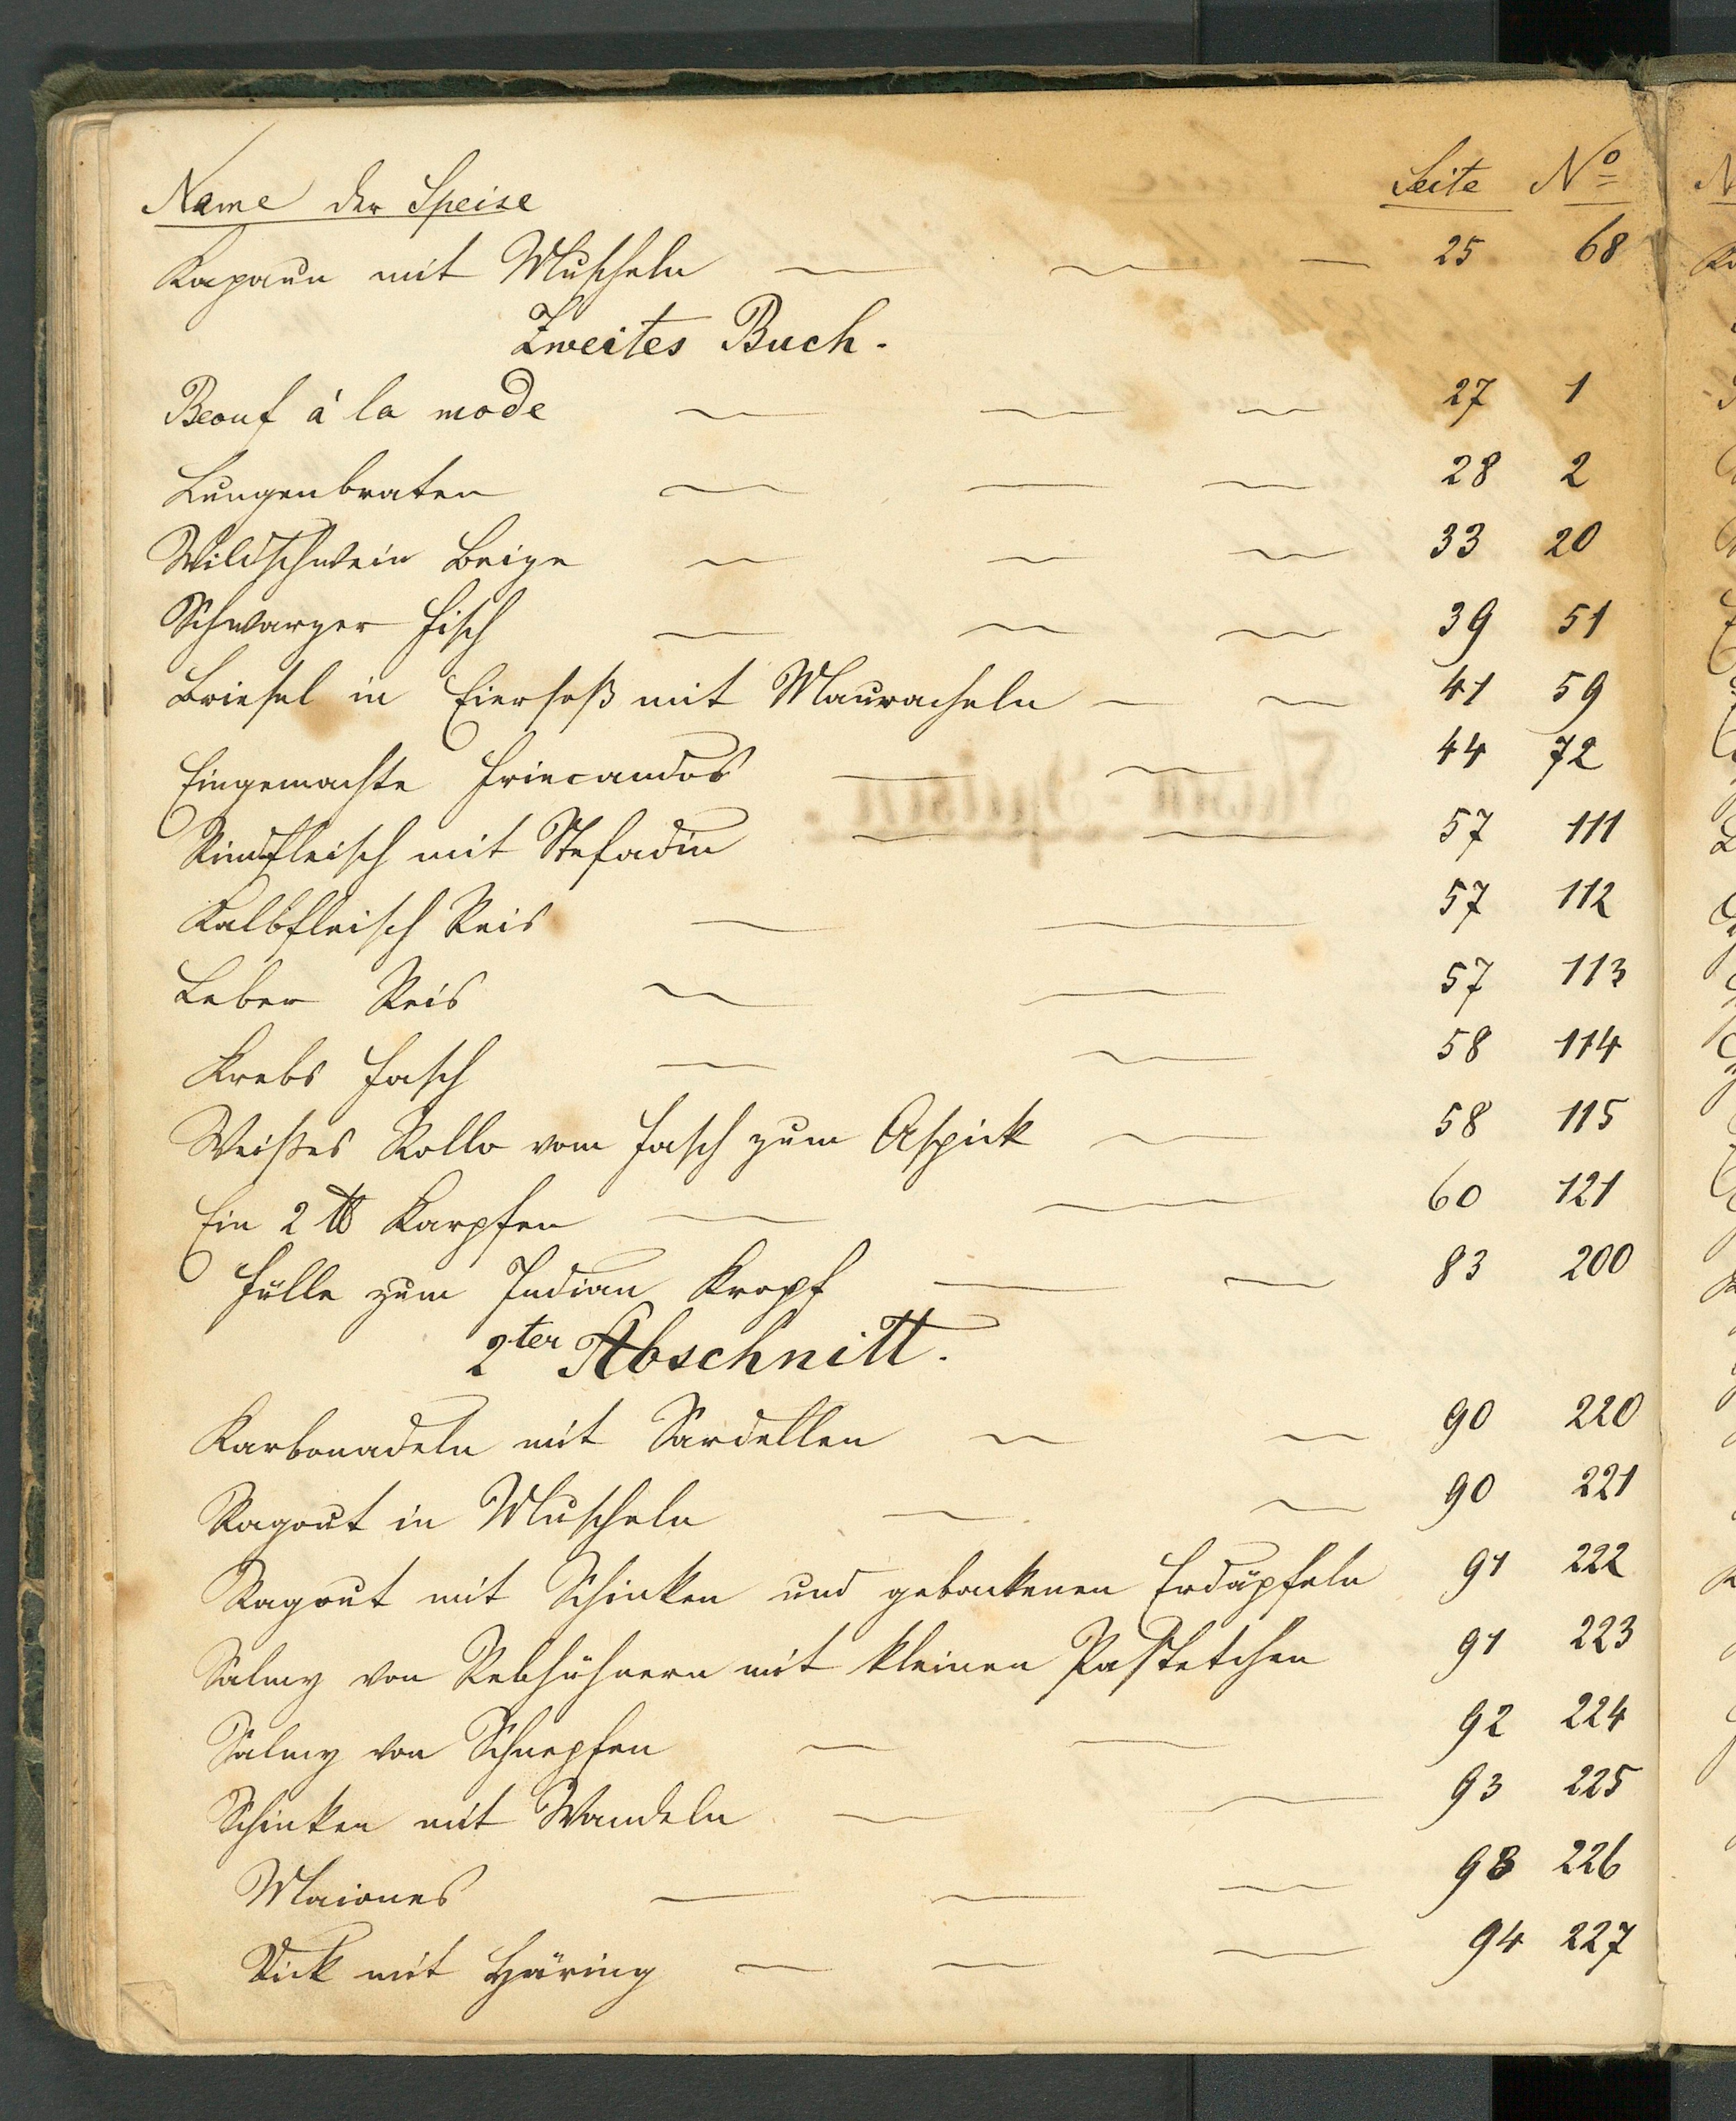 Name der Speise Seite No
Kapaun mit Muscheln 25 68
Zweites Buch.
Beouf à la mode 27 1
Lungenbraten 28 2
Wildschwein Beize 33 20
Schwarzer Fisch 39 51
Briesel in Eiersoß mit Mauracheln 41 59
Eingemachte Friecandos 44 72
Rindfleisch mit Stefadin 57 111
Kalbfleisch Reis 57 112
Leber Reis 57 113
Krebs Fasch 58 114
Weißes Rollo vom Fasch zum Aspick 58 115
Ein 2 ℔ Karpfen 60 121
Fülle zum Indian Kropf 83 200
2ter Abschnitt.
Karbonadeln mit Sardellen 90 220
Ragout in Muscheln 90 221
Ragout mit Schinken und gebackenen Erdäpfeln 91 222
Salmy von Rebhühnern mit kleinen Pastetchen 91 223
Salmy von Schnepfen 92 224
Schinken mit Wandeln 93 225
Maiones 93 226
Dick mit Häring 94 227